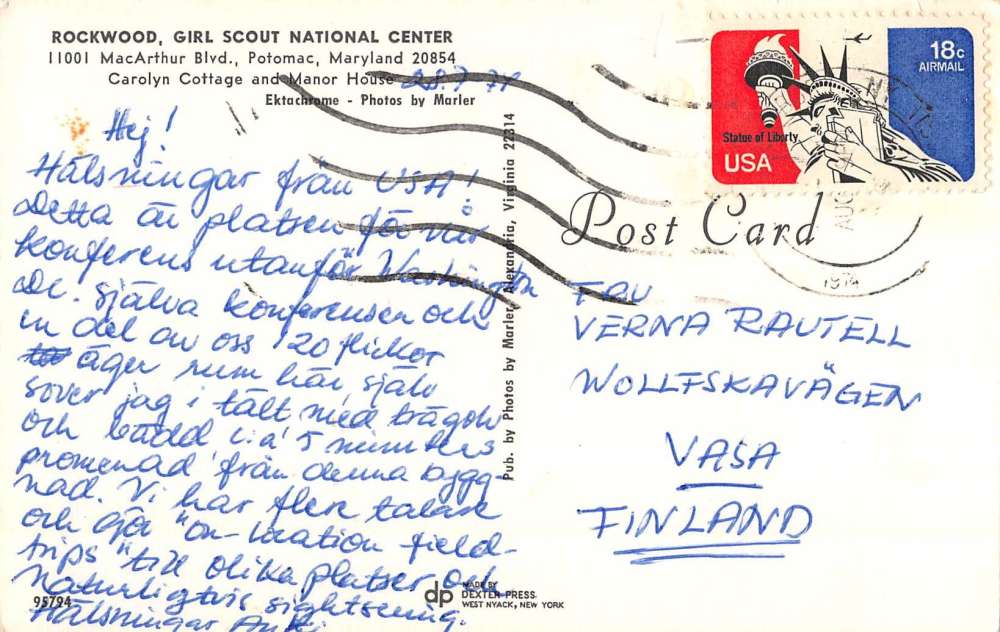 ROCKWOOD, GIRL SCOUT NATIONAL CENTER
11001 MacArthur Blvd., Potomac, Maryland 20854
Carolyn Cottage and Manor House
Ektachrome - Photos by Marler
Hej!
Hälsningar från USA!
Detta är platsen för vår
konferens utanför Washington
DC. själva konferensen och
en del av oss 120 flickor
äger rum här, själv
sover jag i tält med trägolv
och bädd c:a 5 minuters
promenad från denna bygg-
nad. Vi har flera talare
och gör "on-location field-
trips" till olika platser och
naturligtvis sightseeing.
Hälsningar
95794
Pub. by Photos by Marler, Alexandria, Virginia 22314
dp
MADE BY
DEXTER PRESS
WEST NYACK, NEW YORK
18c
AIRMAIL
Statue of Liberty
USA
AUG
1974
Post Card
FRU
VERNA RAUTELL
WOLLFSKAVÄGEN
VASA
FINLAND